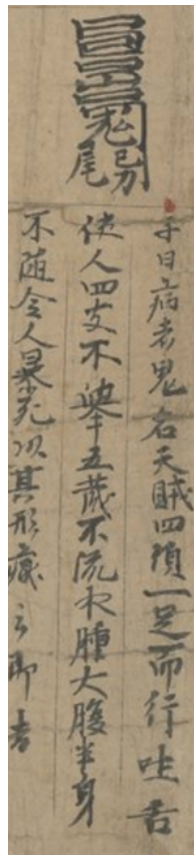 子日病者鬼名天賊四頭一足而行吐舌
使人四支不舉五藏不流水腫大腹半身
不隨令人暴死以其形之即吉